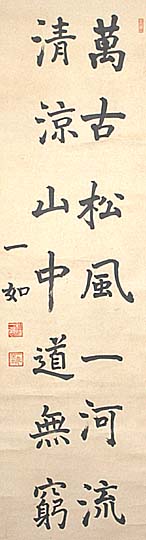 萬古松風一河流
清涼山中道無窮
一如